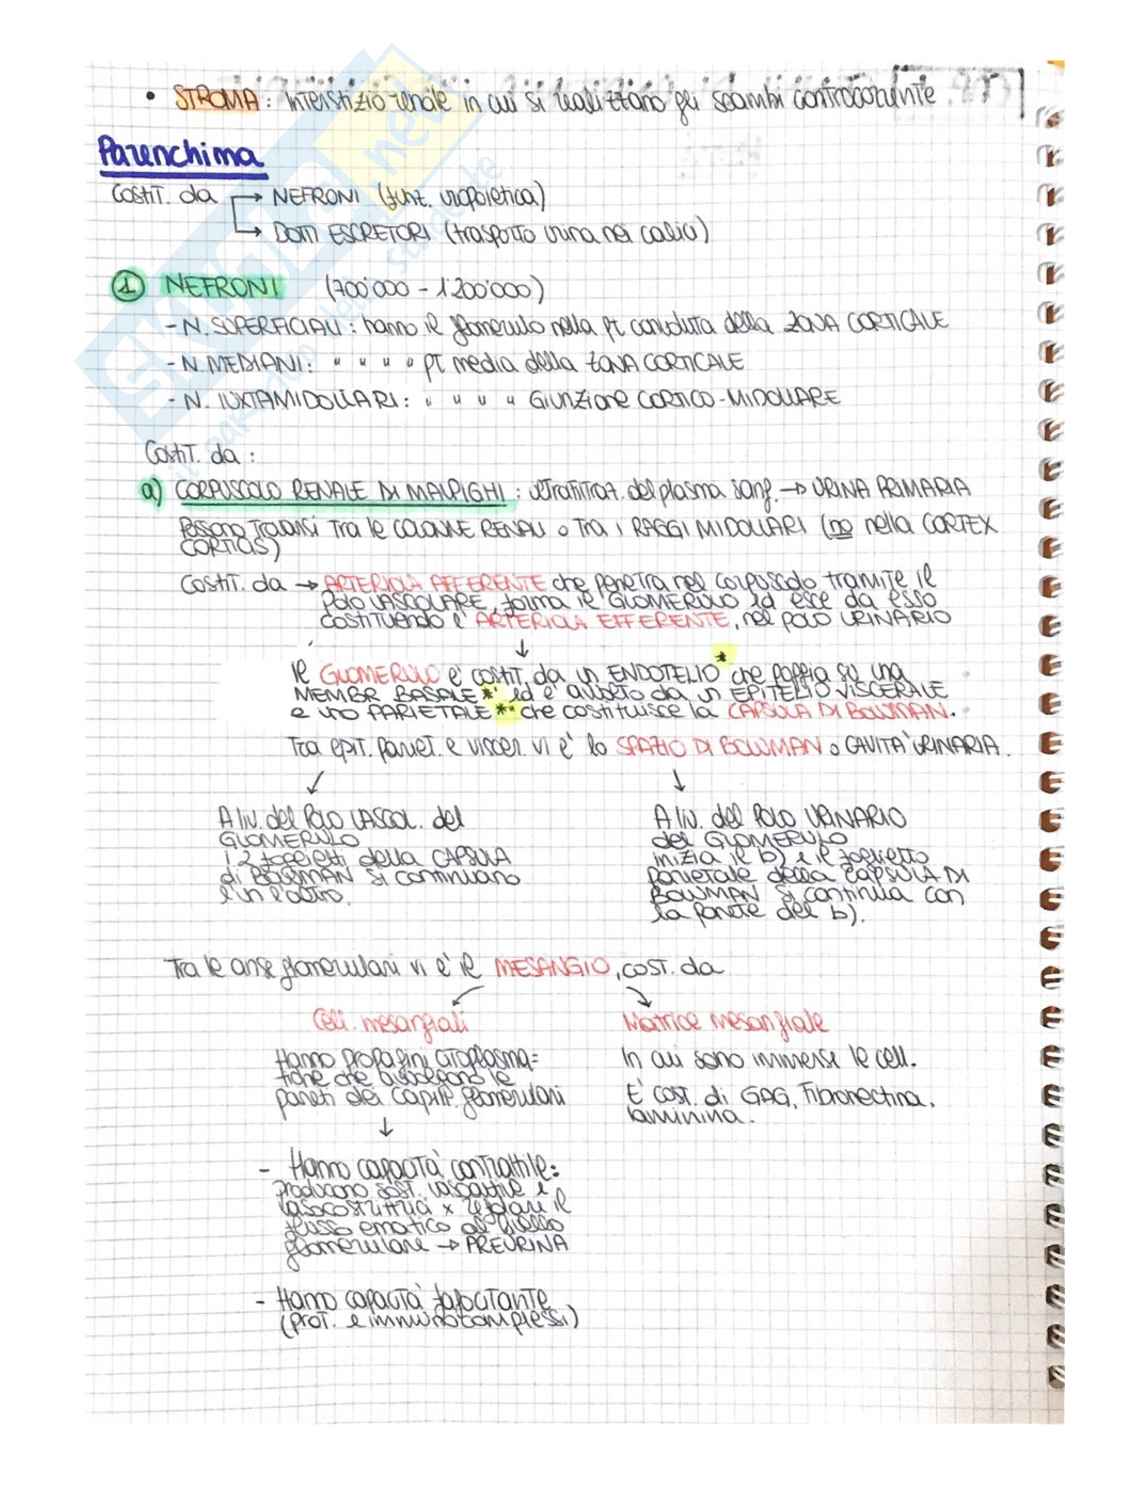 • STROMA: Interstizio renale in cui si realizzano gli scambi controcorrente
Parenchima
Costit. da → NEFRONI (funz. uropoietica)
→ DOTTI ESCRETORI (trasporto urina nei calici)
1 NEFRONI (700'000 - 1'200'000)
- N. SUPERFICIALI: hanno il glomerulo nella pt convoluta della ZONA CORTICALE
- N. MEDIANI: " " " " pt media della ZONA CORTICALE
- N. IUXTAMIDOLLARI: " " " " GIUNZIONE CORTICO-MIDOLLARE
Costit. da:
a) CORPUSCOLO RENALE DI MALPIGHI: ultrafiltraz. del plasma sang. → URINA PRIMARIA
Possono trovarsi tra le COLONNE RENALI o tra i RAGGI MIDOLLARI (no nella CORTEX
CORTICIS)
Costit. da → ARTERIOLA AFFERENTE che penetra nel corpuscolo tramite il
POLO VASCOLARE, forma il GLOMERULO ed esce da esso
costituendo l'ARTERIOLA EFFERENTE, nel POLO URINARIO
↓
Il GLOMERULO è costit. da un ENDOTELIO* che poggia su una
MEMBR BASALE*' ed è avvolto da un EPITELIO VISCERALE
e uno PARIETALE*" che costituisce la CAPSULA DI BOWMAN.
Tra epit. pariet. e viscer. vi è lo SPAZIO DI BOWMAN o CAVITÀ URINARIA.
↙ ↓
A liv. del POLO VASCOL. del
GLOMERULO
i 2 foglietti della CAPSULA
di BOWMAN si continuano
l'un l'altro.
A liv. del POLO URINARIO
del GLOMERULO
inizia il b) e il foglietto
parietale della CAPSULA DI
BOWMAN si continua con
la parete del b).
Tra le anse glomerulari vi è il MESANGIO, cost. da
↙ ↘
Cell. mesangiali
Hanno propaggini citoplasma=
tiche che avvolgono le
pareti dei capill. glomerulari
↓
- Hanno capacità contrattile:
producono sost. vasoattive e
vasocostruttrici x regolare il
flusso ematico a livello
glomerulare → PREURINA
- Hanno capacità fagocitante
(prot. e immunocomplessi)
Matrice mesangiale
In cui sono immerse le cell.
È cost. di GAG, fibronectina,
laminina.